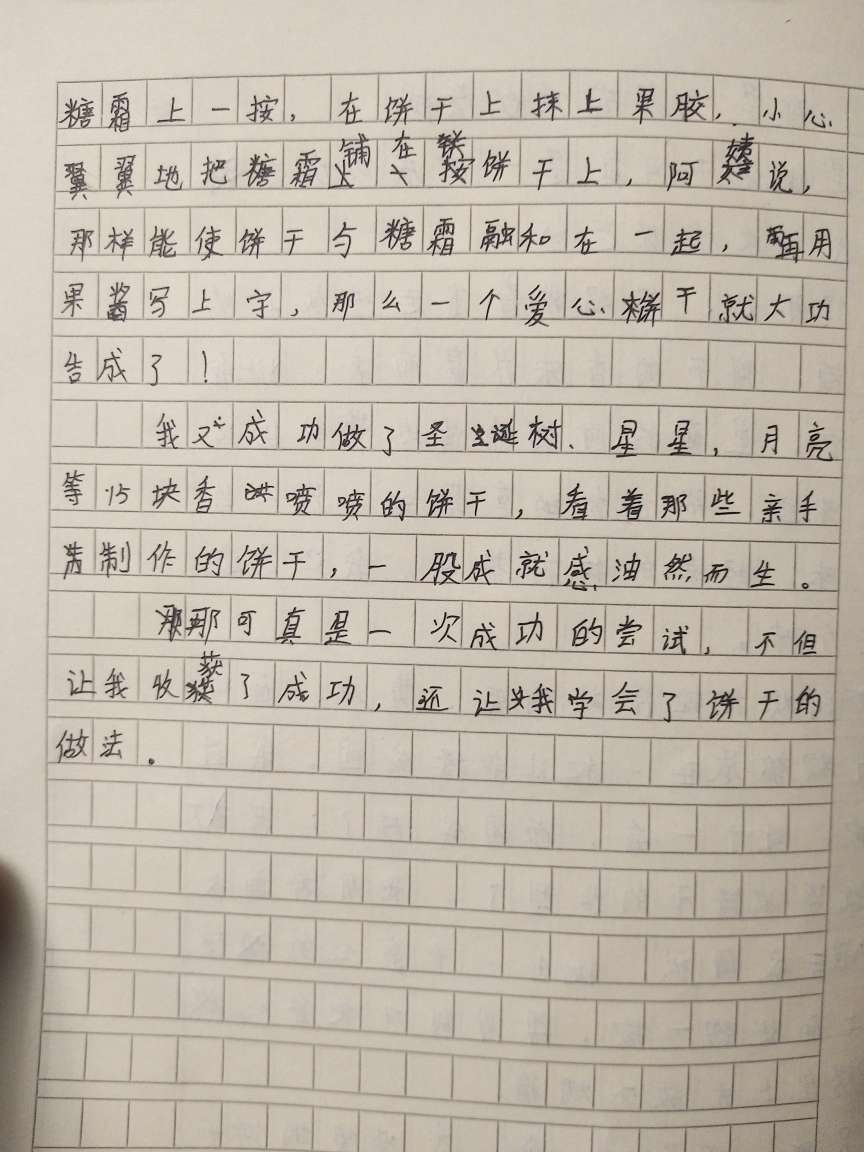 糖霜上一按，在饼干上抹上果胶，小心
翼翼地把糖霜铺在饼干上，阿姨说，
那样能使饼干与糖霜融和在一起，再用
果酱写上字，那么一个爱心饼干就大功
告成了！
我又成功做了圣诞树、星星，月亮
等15块香喷喷的饼干，看着那些亲手
制作的饼干，一股成就感油然而生。
那可真是一次成功的尝试，不但
让我收获了成功，还让我学会了饼干的
做法。